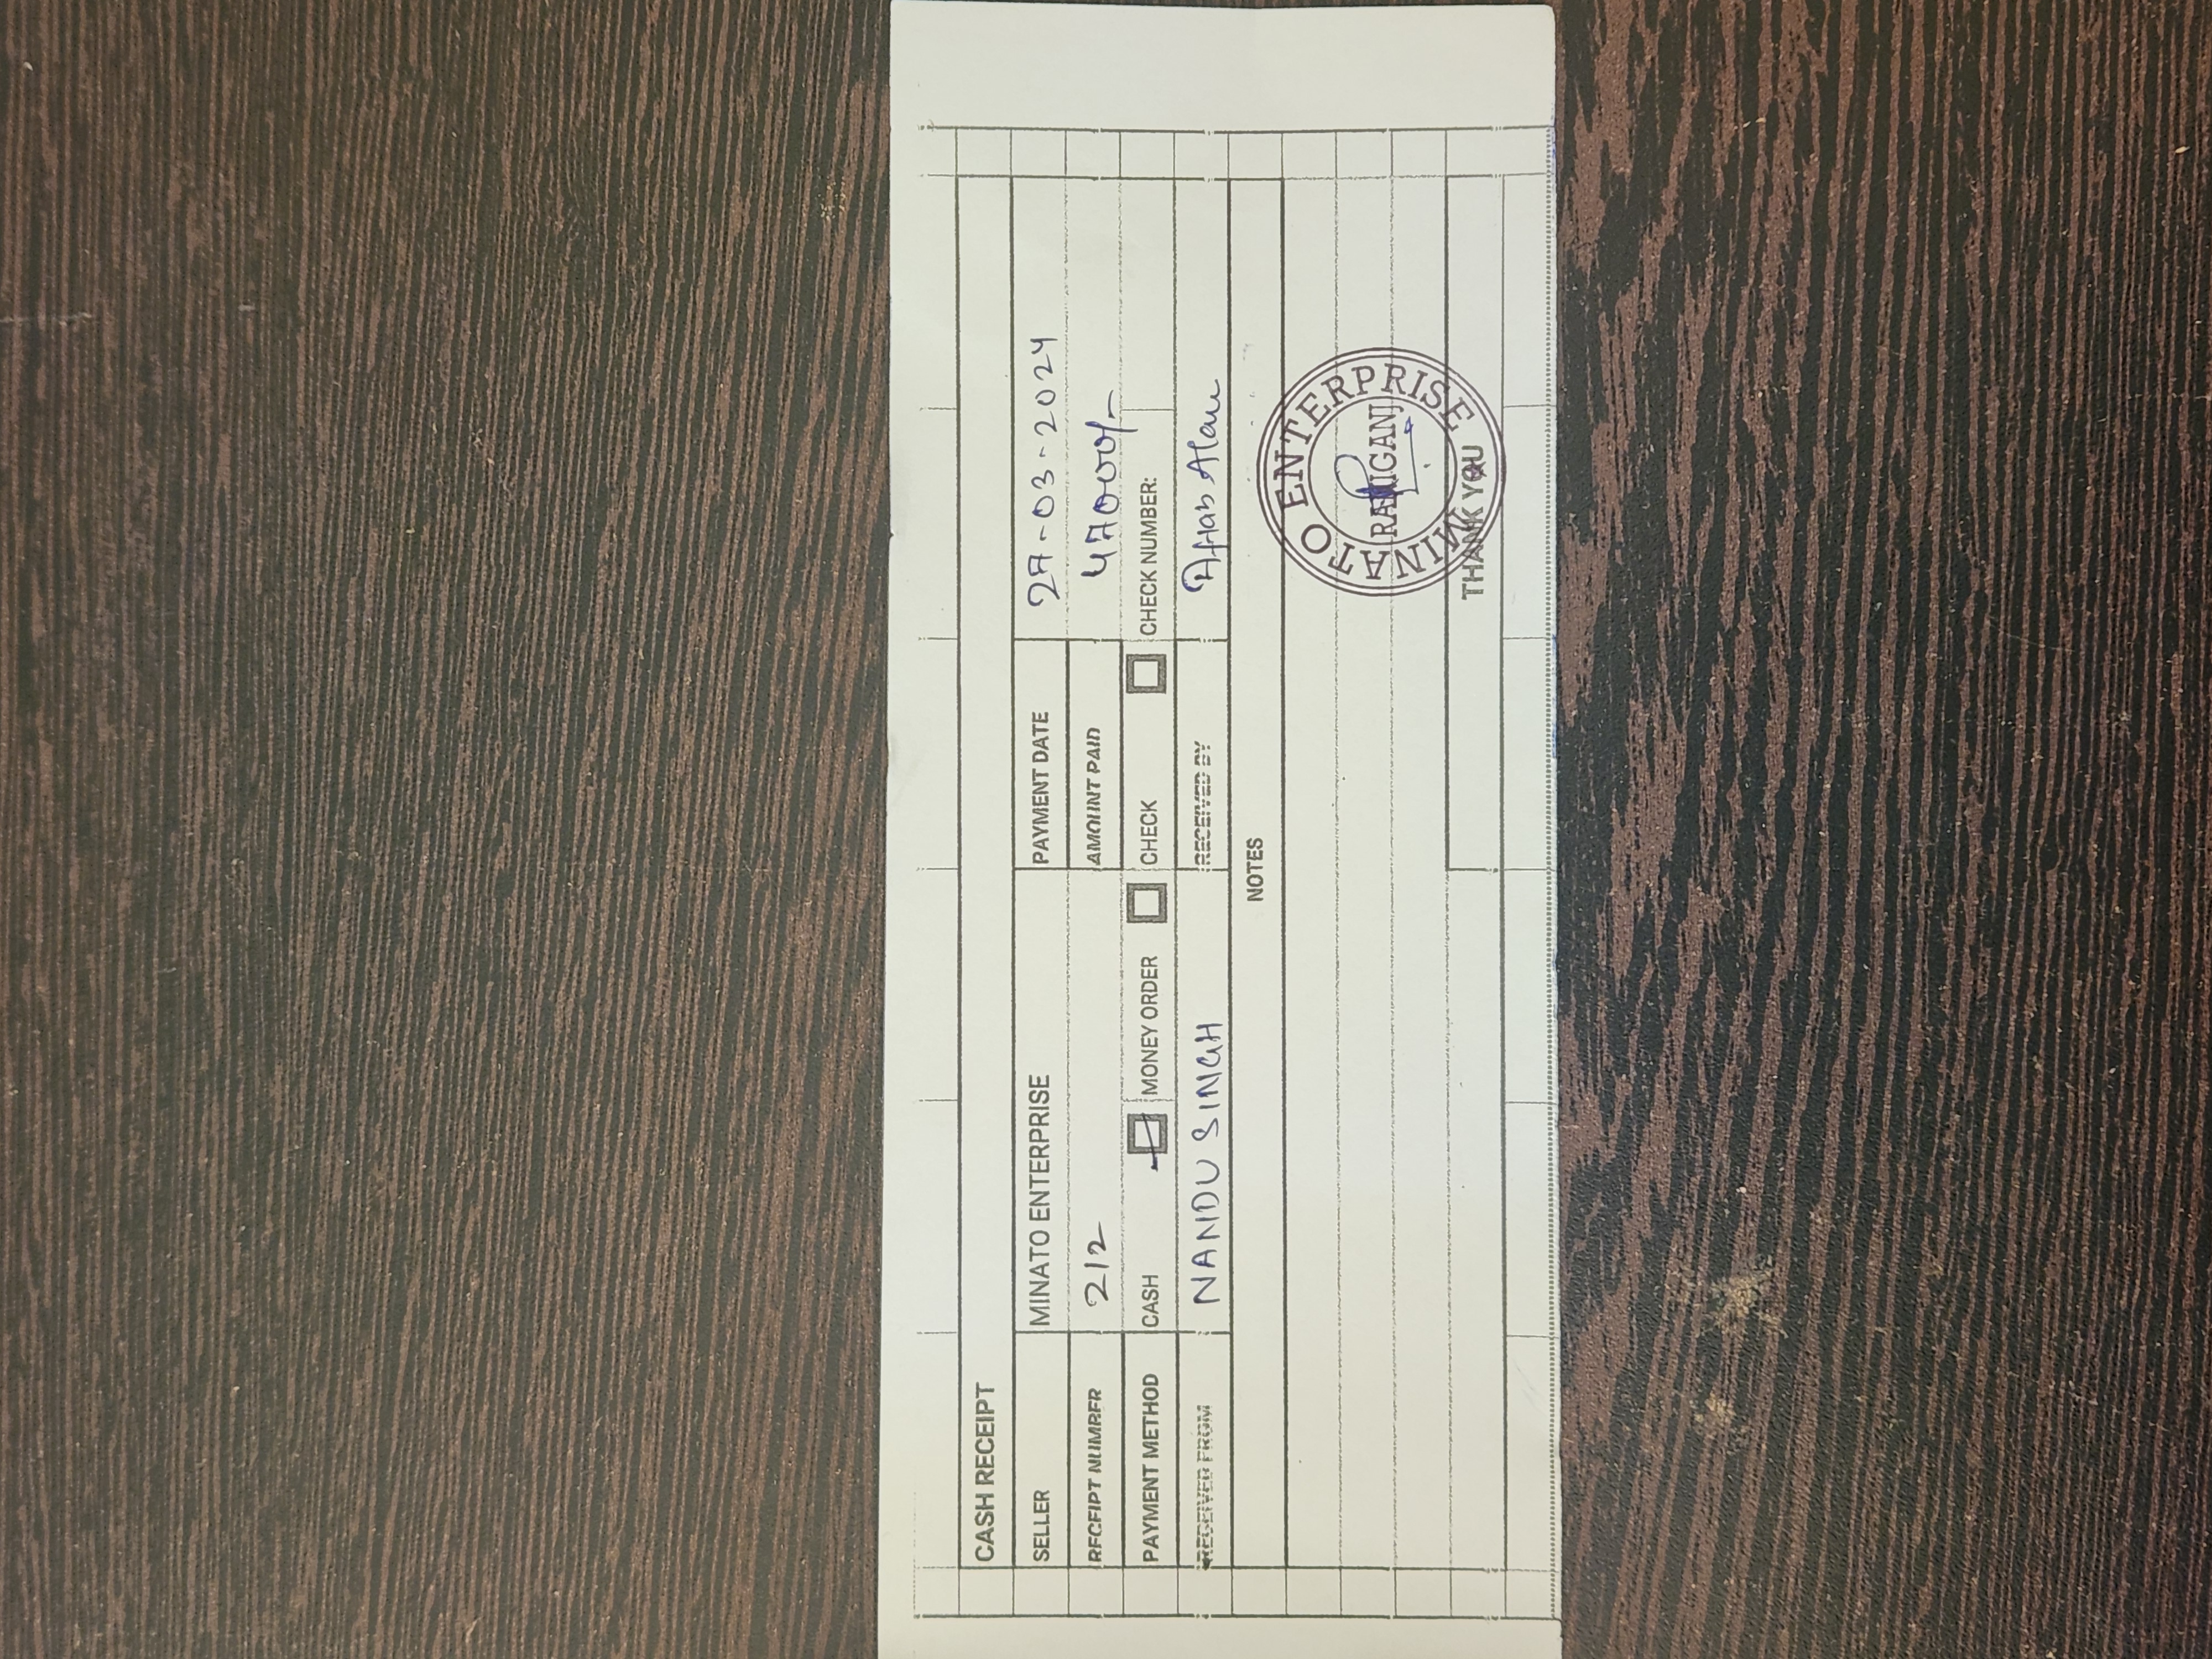 CASH RECEIPT
SELLER MINATO ENTERPRISE PAYMENT DATE 27-03-2024
RECEIPT NUMBER 212 AMOUNT PAID 47000/-
PAYMENT METHOD CASH MONEY ORDER CHECK CHECK NUMBER:
RECEIVED FROM NANDU SINGH RECEIVED BY Aftab Alam
NOTES
MINATO ENTERPRISE
RANIGANJ
THANK YOU